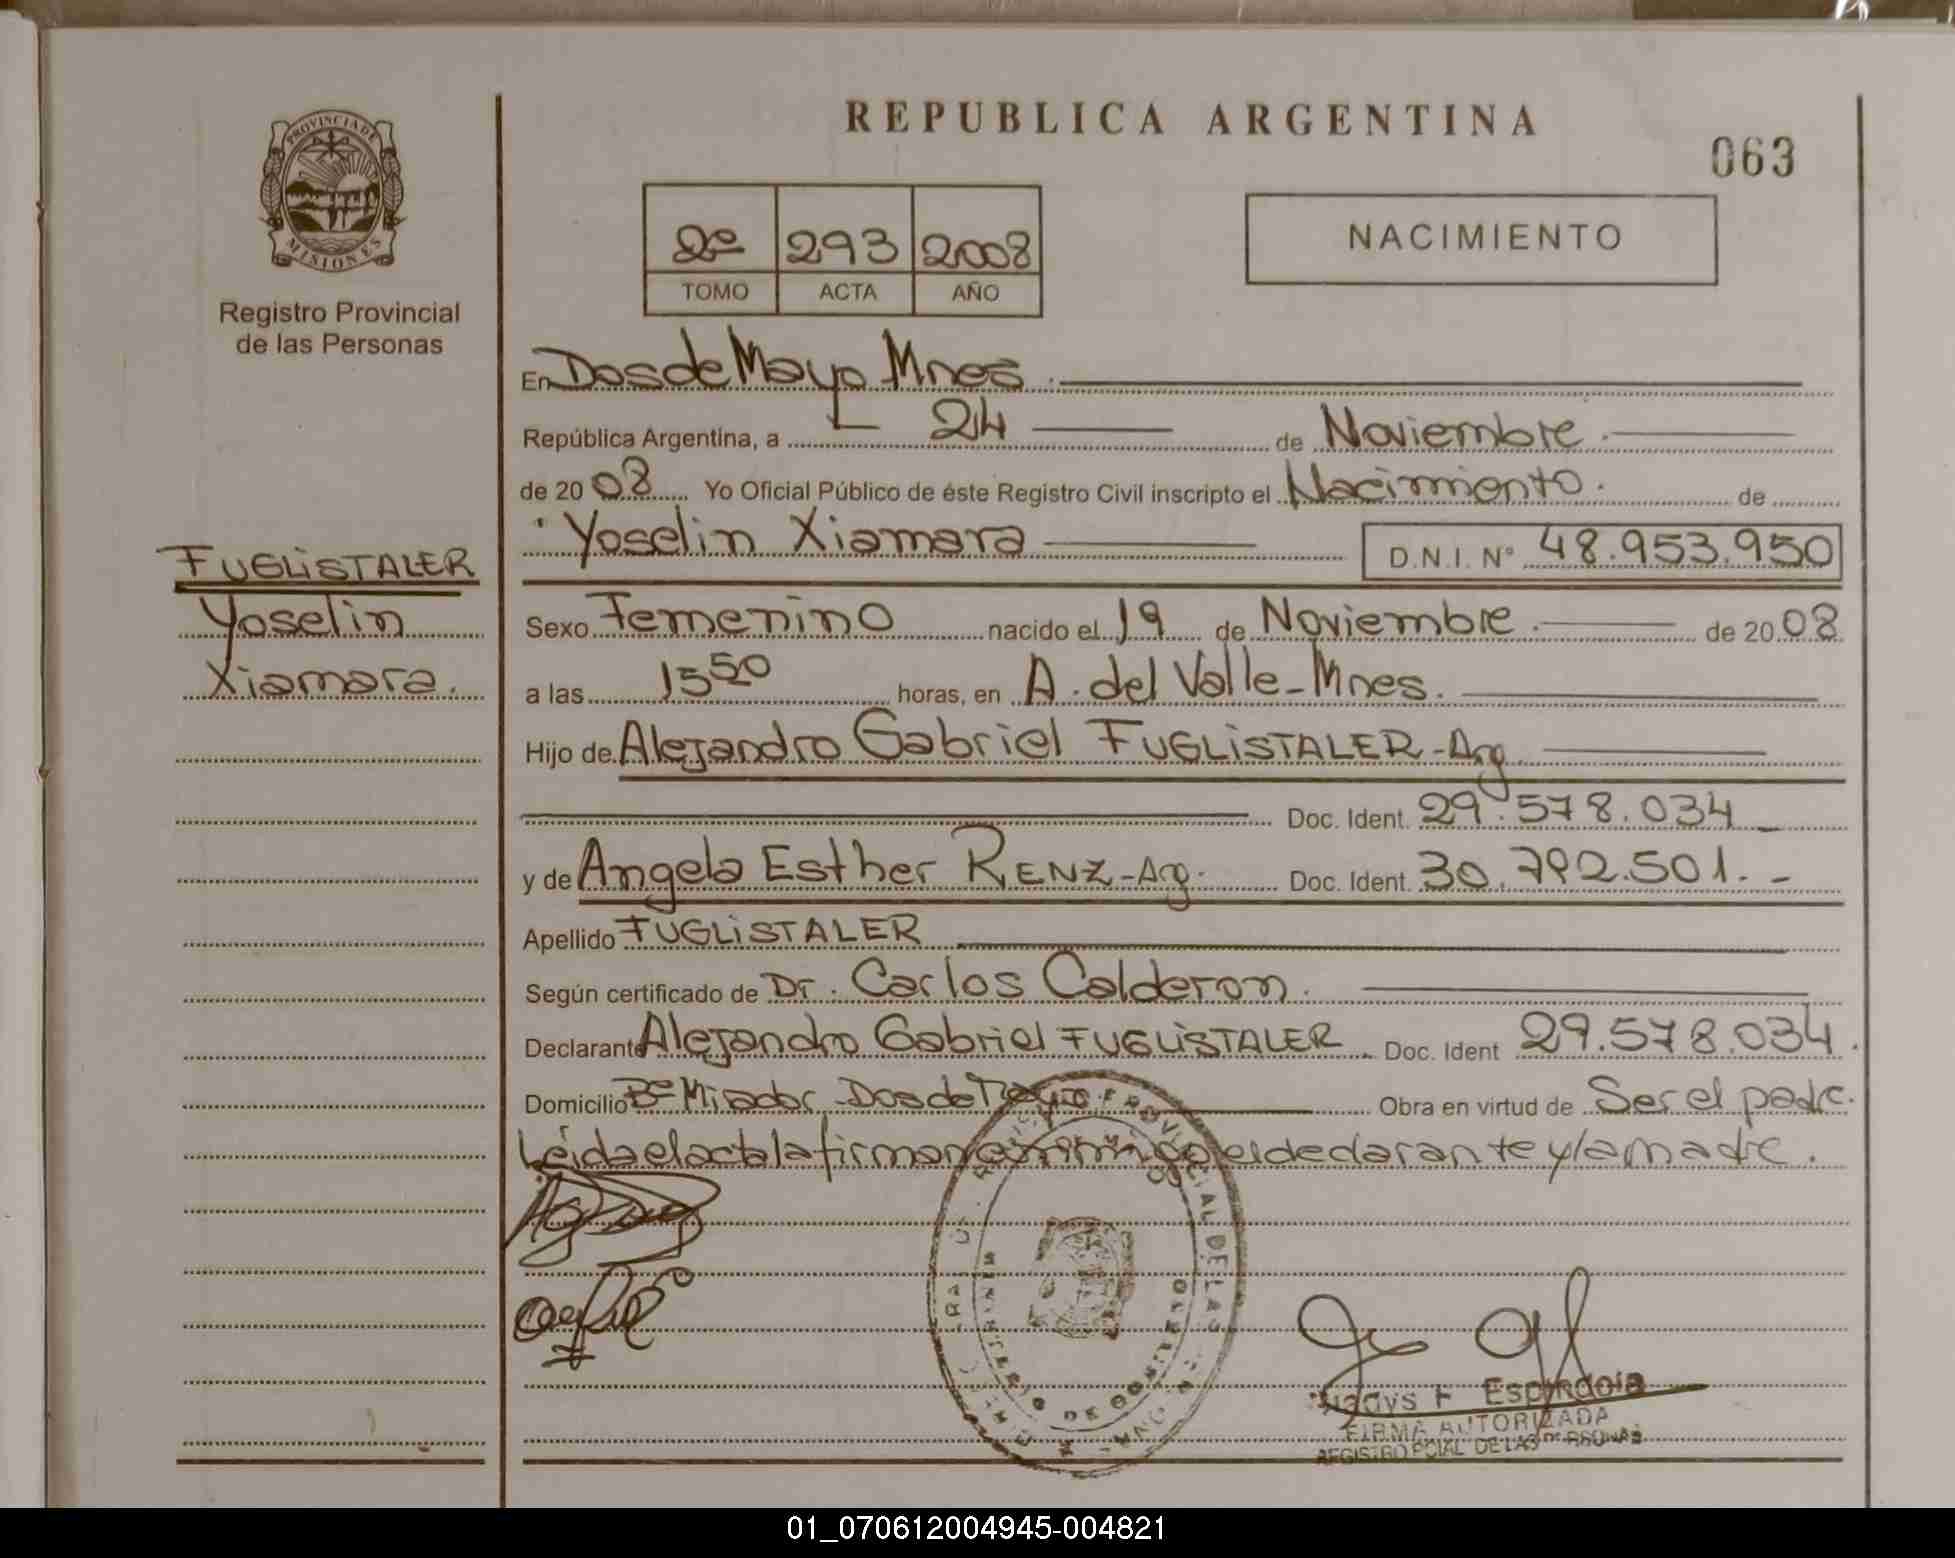 REPUBLICA ARGENTINA
063
PROVINCIA DE
MISIONES
Registro Provincial
de las Personas
2º 293 2008
TOMO ACTA AÑO
NACIMIENTO
En Dos de Mayo Mnes.
República Argentina, a 24 de Noviembre.
de 20 08 Yo Oficial Público de éste Registro Civil inscripto el Nacimiento. de
Yoselin Xiamara D.N.I. Nº 48.953.950
FUGLiSTALER
Yoselin
Xiamara.
Sexo Femenino nacido el 19 de Noviembre. de 20 08
a las 15 50 horas, en A. del Valle-Mnes.
Hijo de Alejandro Gabriel FUGLiSTALER-Arg.
Doc. Ident. 29.578.034
y de Angela Esther RENZ-Arg. Doc. Ident. 30.792.501.-
Apellido FUGLiSTALER
Según certificado de Dr. Carlos Calderon.
Declarante Alejandro Gabriel FUGLiSTALER Doc. Ident 29.578.034.
Domicilio Bº Mirador-Dos de Mayo Obra en virtud de Ser el padre.
Leída el acta la firman conmigo el declarante y la madre.
PROVINCIAL DE LAS
MINISTERIO DE GOBIERNO
Gladys F Espindola
FIRMA AUTORIZADA
REGISTRO PCIAL DE LAS PERSONAS
01_070612004945-004821